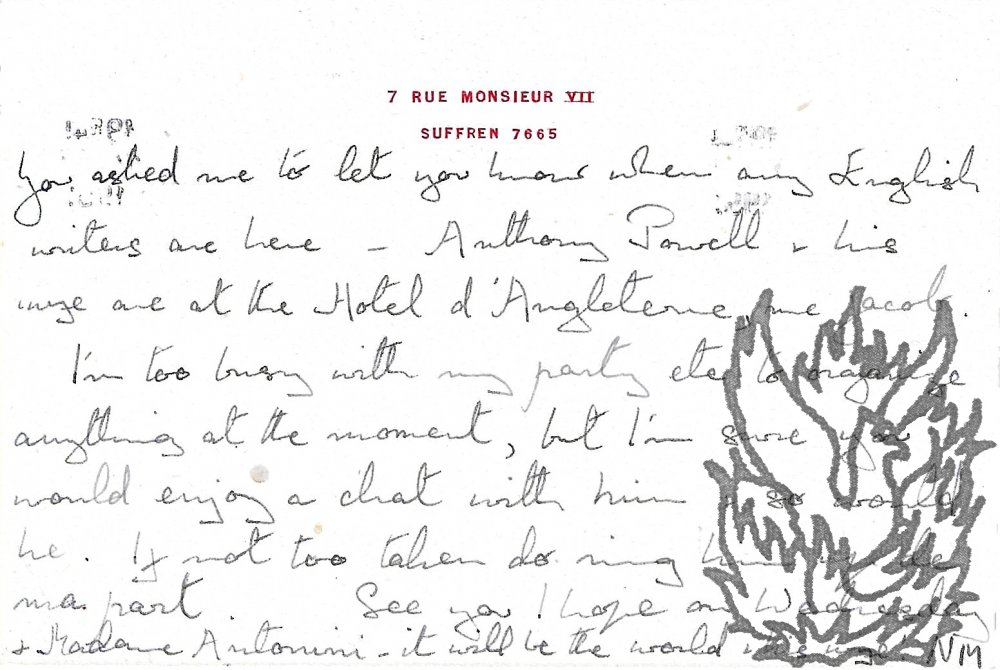 7 RUE MONSIEUR VII
SUFFREN 7665
You asked me to let you know when any English
writers are here – Anthony Powell & his
are at the Hotel d'Angleterre, rue Jacob.
I'm too busy with my party etc to organize
anything at the moment, but I'm sure you
would enjoy a chat with him & so would
he. If not too taken do ring him up de
ma part. See you I hope on Wednesday
& Madame Antonini – it will be the world
NM